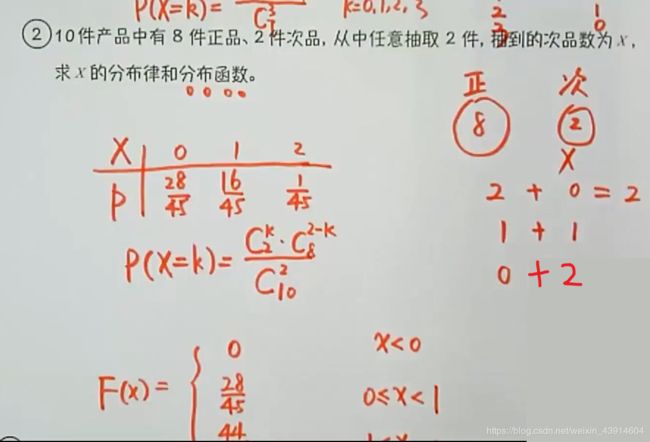 P(X=k)= C₇³ k=0,1,2,3 2 1
3 0
② 10件产品中有 8 件正品、2 件次品，从中任意抽取 2 件，抽到的次品数为 X，
求 X 的分布律和分布函数。
正 次
8 2
X
X 0 1 2
P 28/45 16/45 1/45
2 + 0 = 2
1 + 1
0 + 2
P(X=k)= C₂ᵏ·C₈²⁻ᵏ / C₁₀²
0 x<0
F(x)= { 28/45 0≤x<1
44
https://blog.csdn.net/weixin_43914604